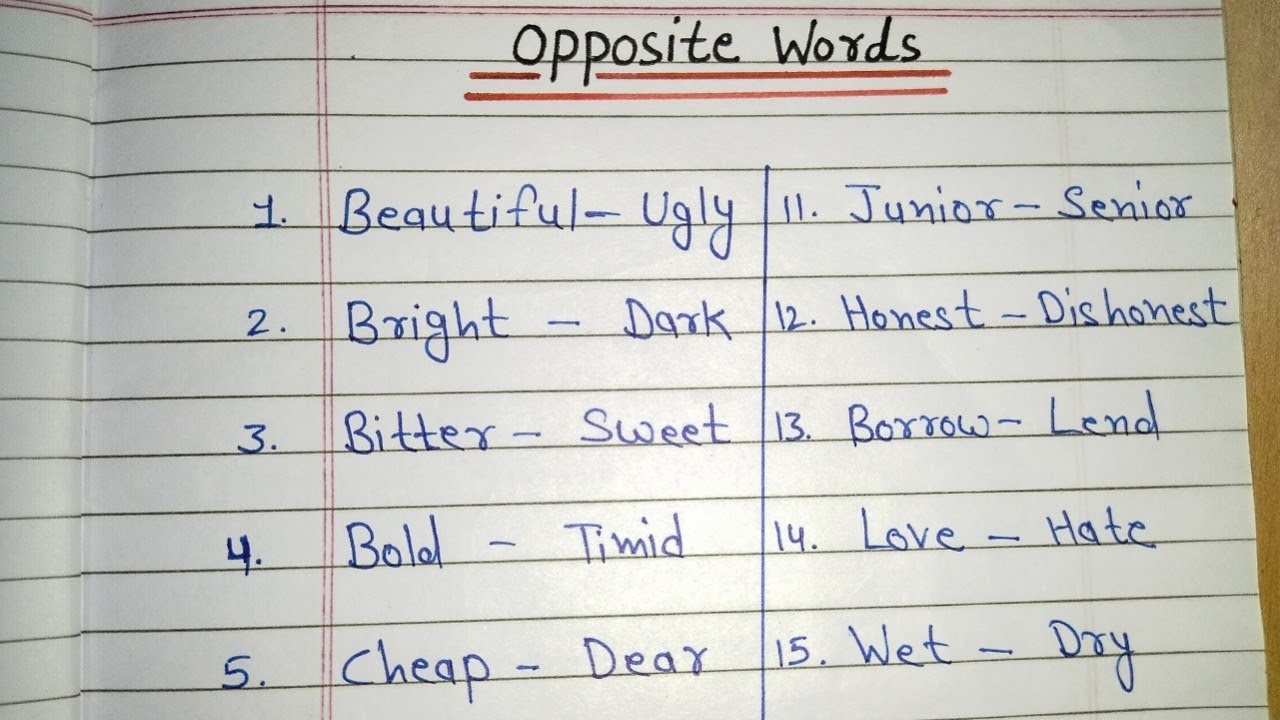 Opposite Words
1. Beautiful – Ugly
2. Bright – Dark
3. Bitter – Sweet
4. Bold – Timid
5. Cheap – Dear
11. Junior – Senior
12. Honest – Dishonest
13. Borrow – Lend
14. Love – Hate
15. Wet – Dry